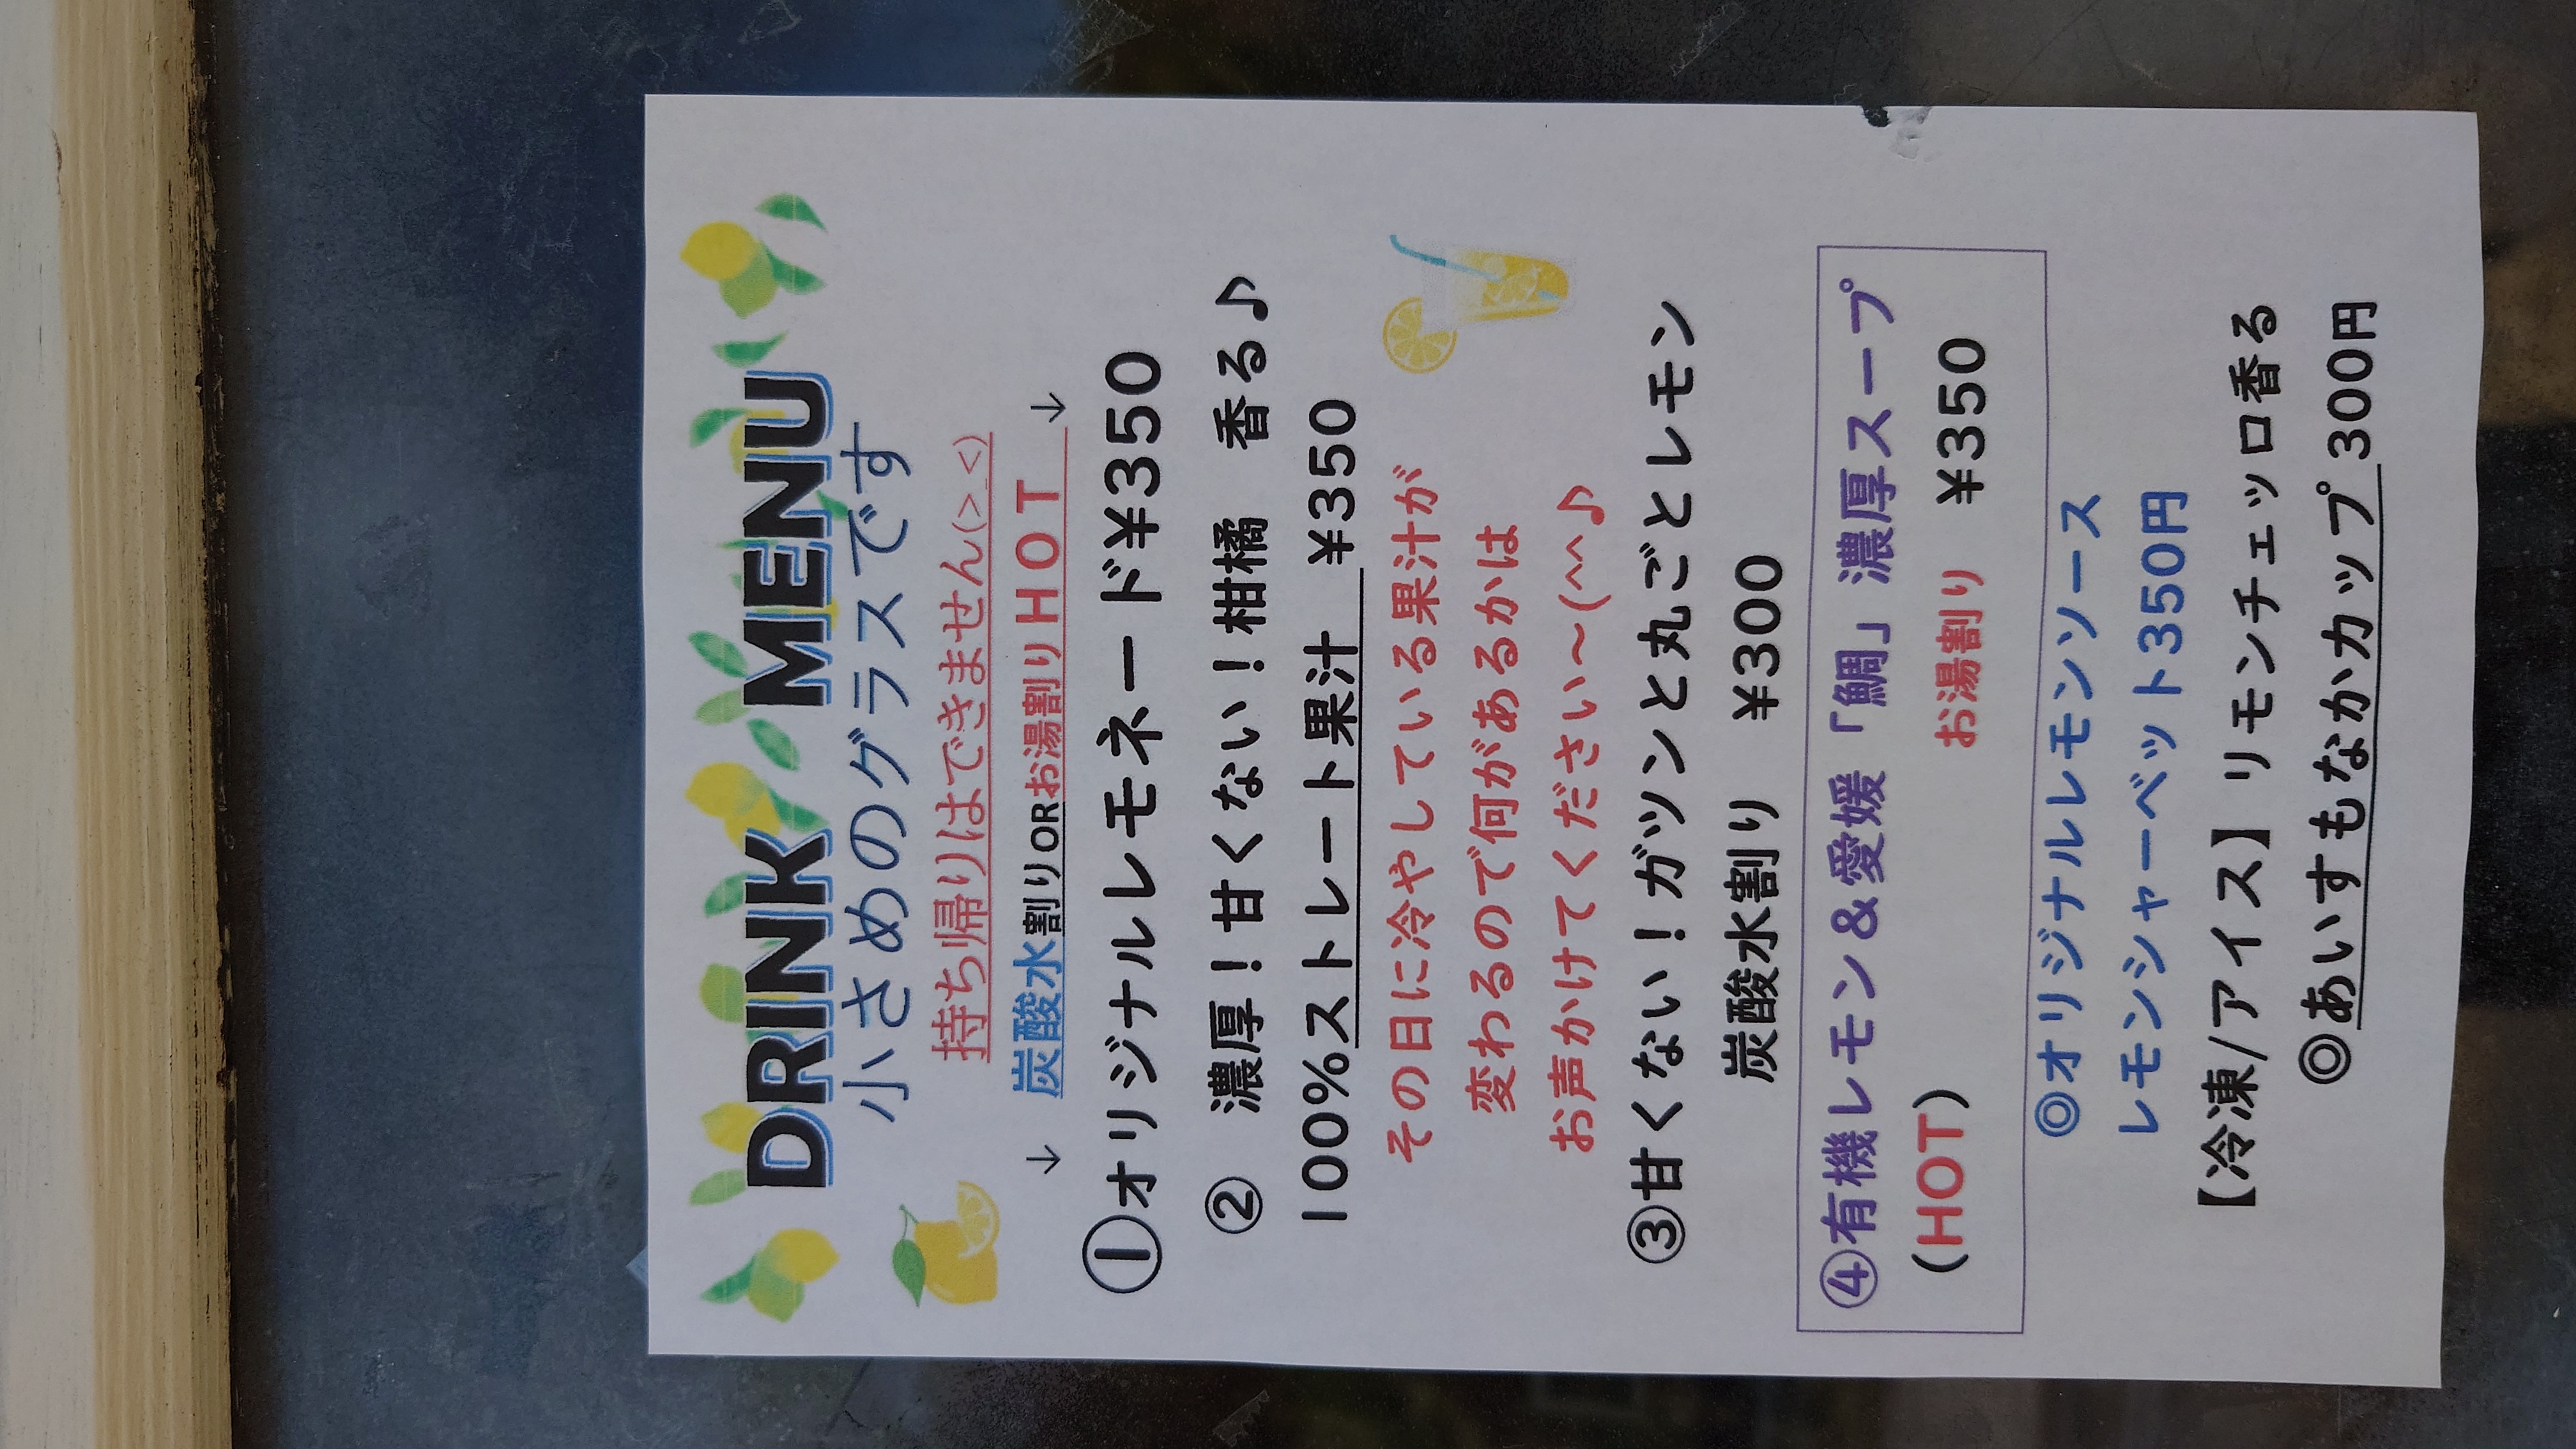 DRINK MENU
小さめのグラスです
持ち帰りはできません(>_<)
↓ 炭酸水割りORお湯割りHOT ↓
①オリジナルレモネード¥350
② 濃厚！甘くない！柑橘 香る♪
100%ストレート果汁 ¥350
その日に冷やしている果汁が
変わるので何があるかは
お声かけてください～(^^♪
③甘くない！ガツンと丸ごとレモン
炭酸水割り ¥300
④有機レモン＆愛媛「鯛」濃厚スープ
(HOT) お湯割り ¥350
◎オリジナルレモンソース
レモンシャーベット350円
【冷凍/アイス】リモンチェッロ香る
◎あいすもなかカップ 300円